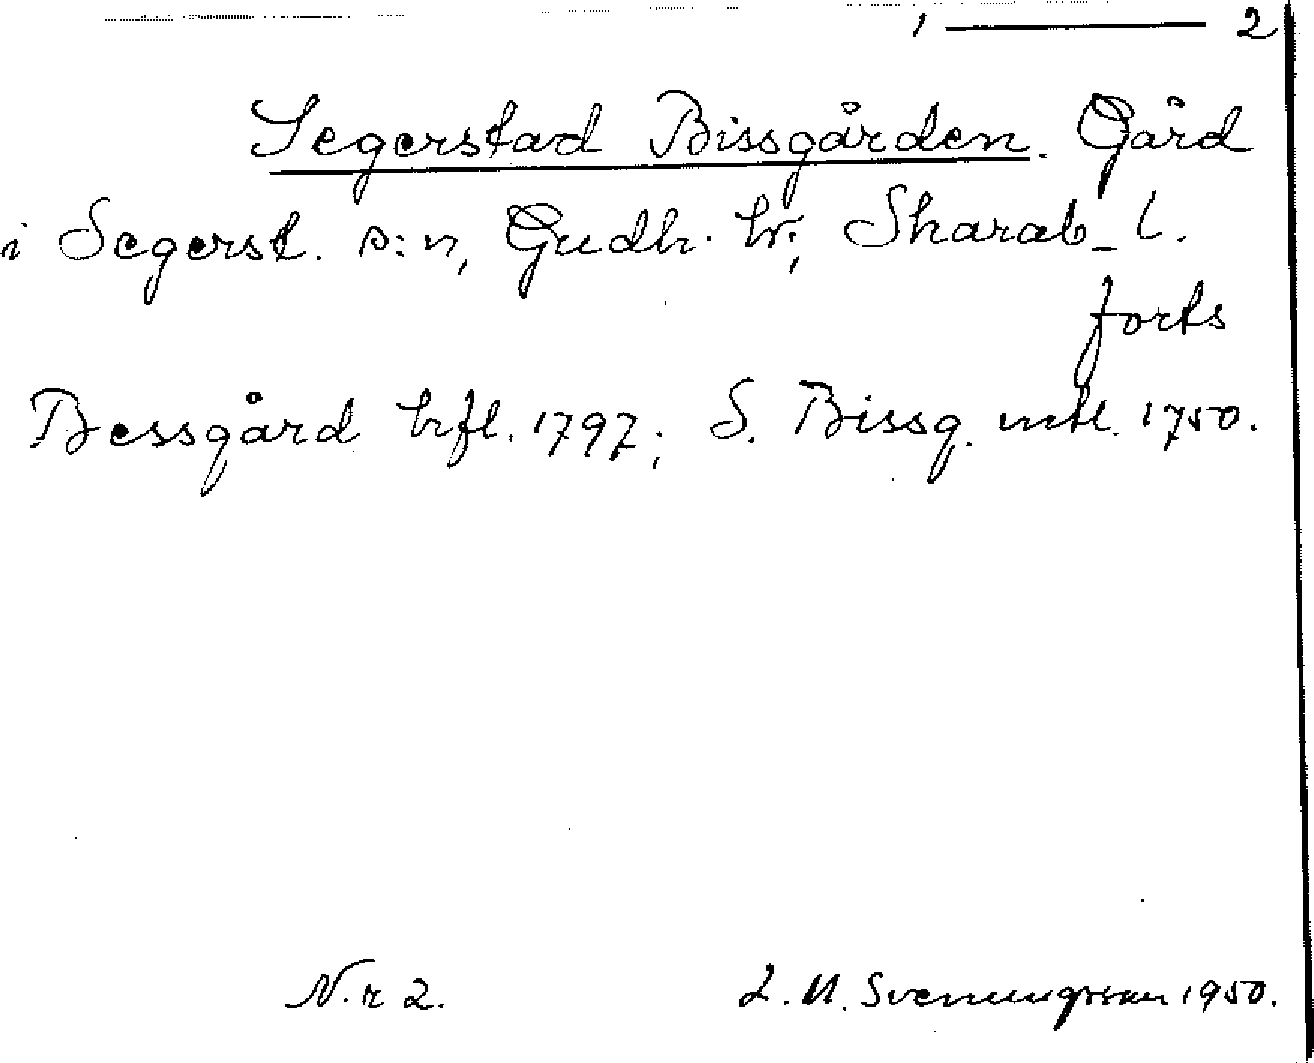 1 — 2
Segerstad Bissgården. Gård
i Segerst. s:n, Gudh. hr; Skarab. l.
forts
Bessgård brfl. 1797; S. Bissg. mtl. 1750.
N:r 2. L. M. Svenungsson 1950.